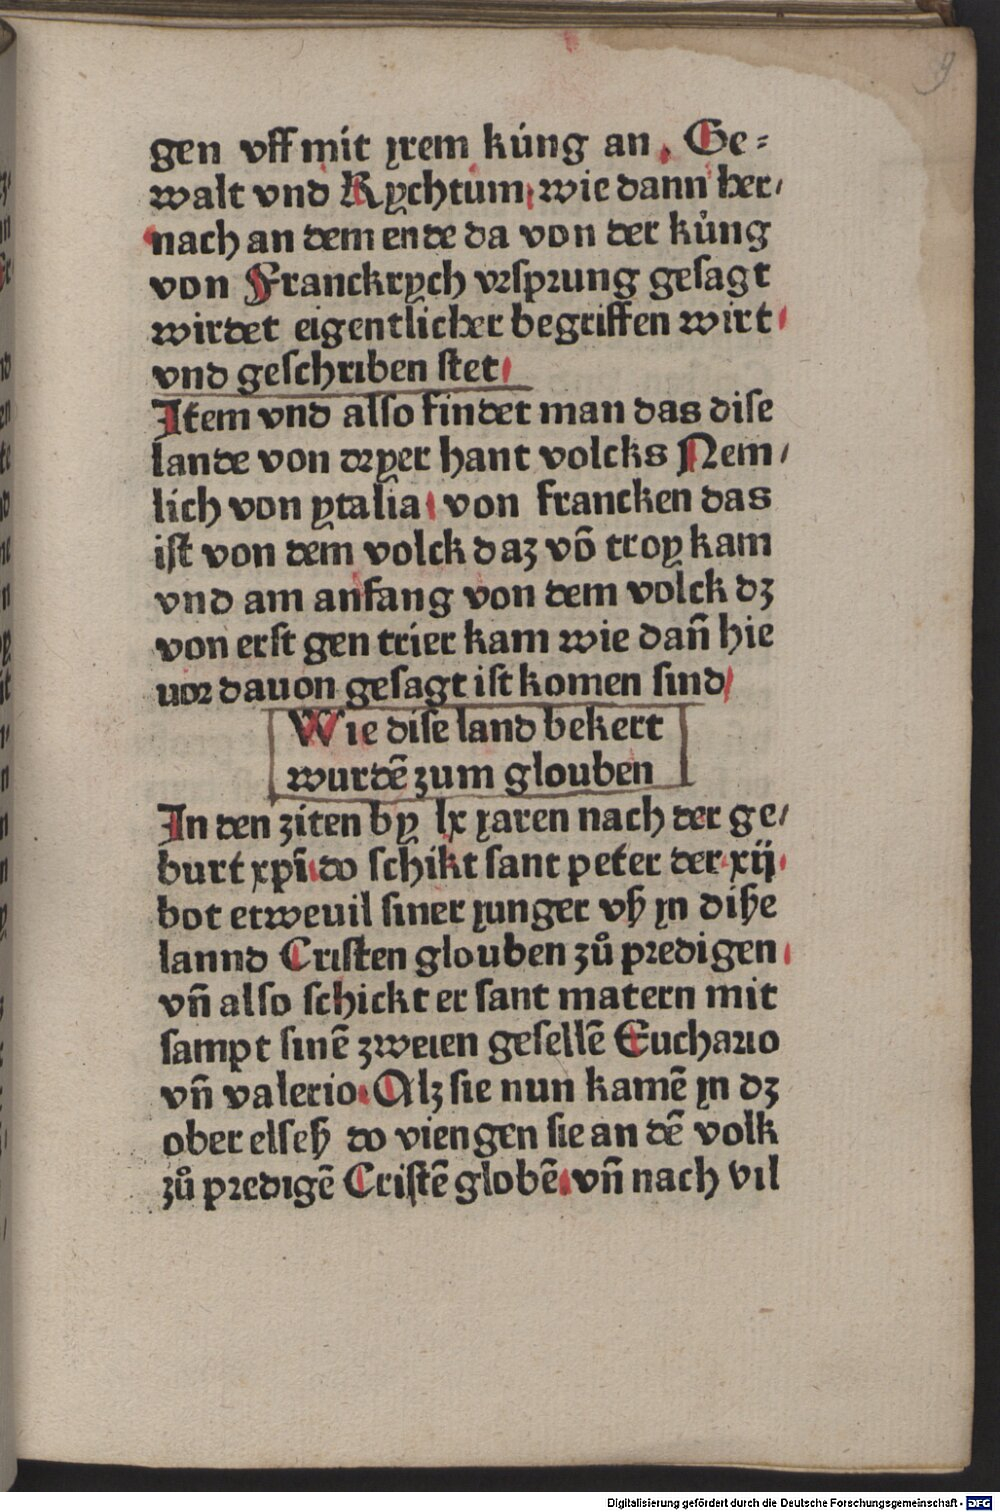 9
gen vff mit yrem kúng an. Ge⸗
walt vnd Rychtum, wie dann her/
nach an dem ende da von der kůng
von Franckrych vꝛſpꝛung geſagt
wirdet eigentlicher begriffen wirt
vnd geſchriben ſtet
Item vnd alſo findet man das diſe
lande von dꝛyer hant volcks Nem/
lich von ytalia von francken das
iſt von dem volck daʒ vō troy kam
vnd am anfang von dem volck dʒ
von erſt gen trier kam wie dan̄ hie
uoꝛ dauon geſagt iſt komen ſind
Wie diſe land bekert
wurdē zum glouben
In den ziten by lx yaren nach der ge/
burt xpī do ſchikt ſant peter der xij
bot etweuil ſiner yunger vß yn diße
lannd Criſten glouben zů pꝛedigen
vn̄ alſo ſchickt er ſant matern mit
ſampt ſinē zweien geſellē Euchaꝛio
vn̄ valerio. Alʒ ſie nun kamē yn dʒ
ober elſeß do viengen ſie an dē volk
zů pꝛedigē Criſtē globē. vn̄ nach vil
Digitalisierung gefördert durch die Deutsche Forschungsgemeinschaft - DFG